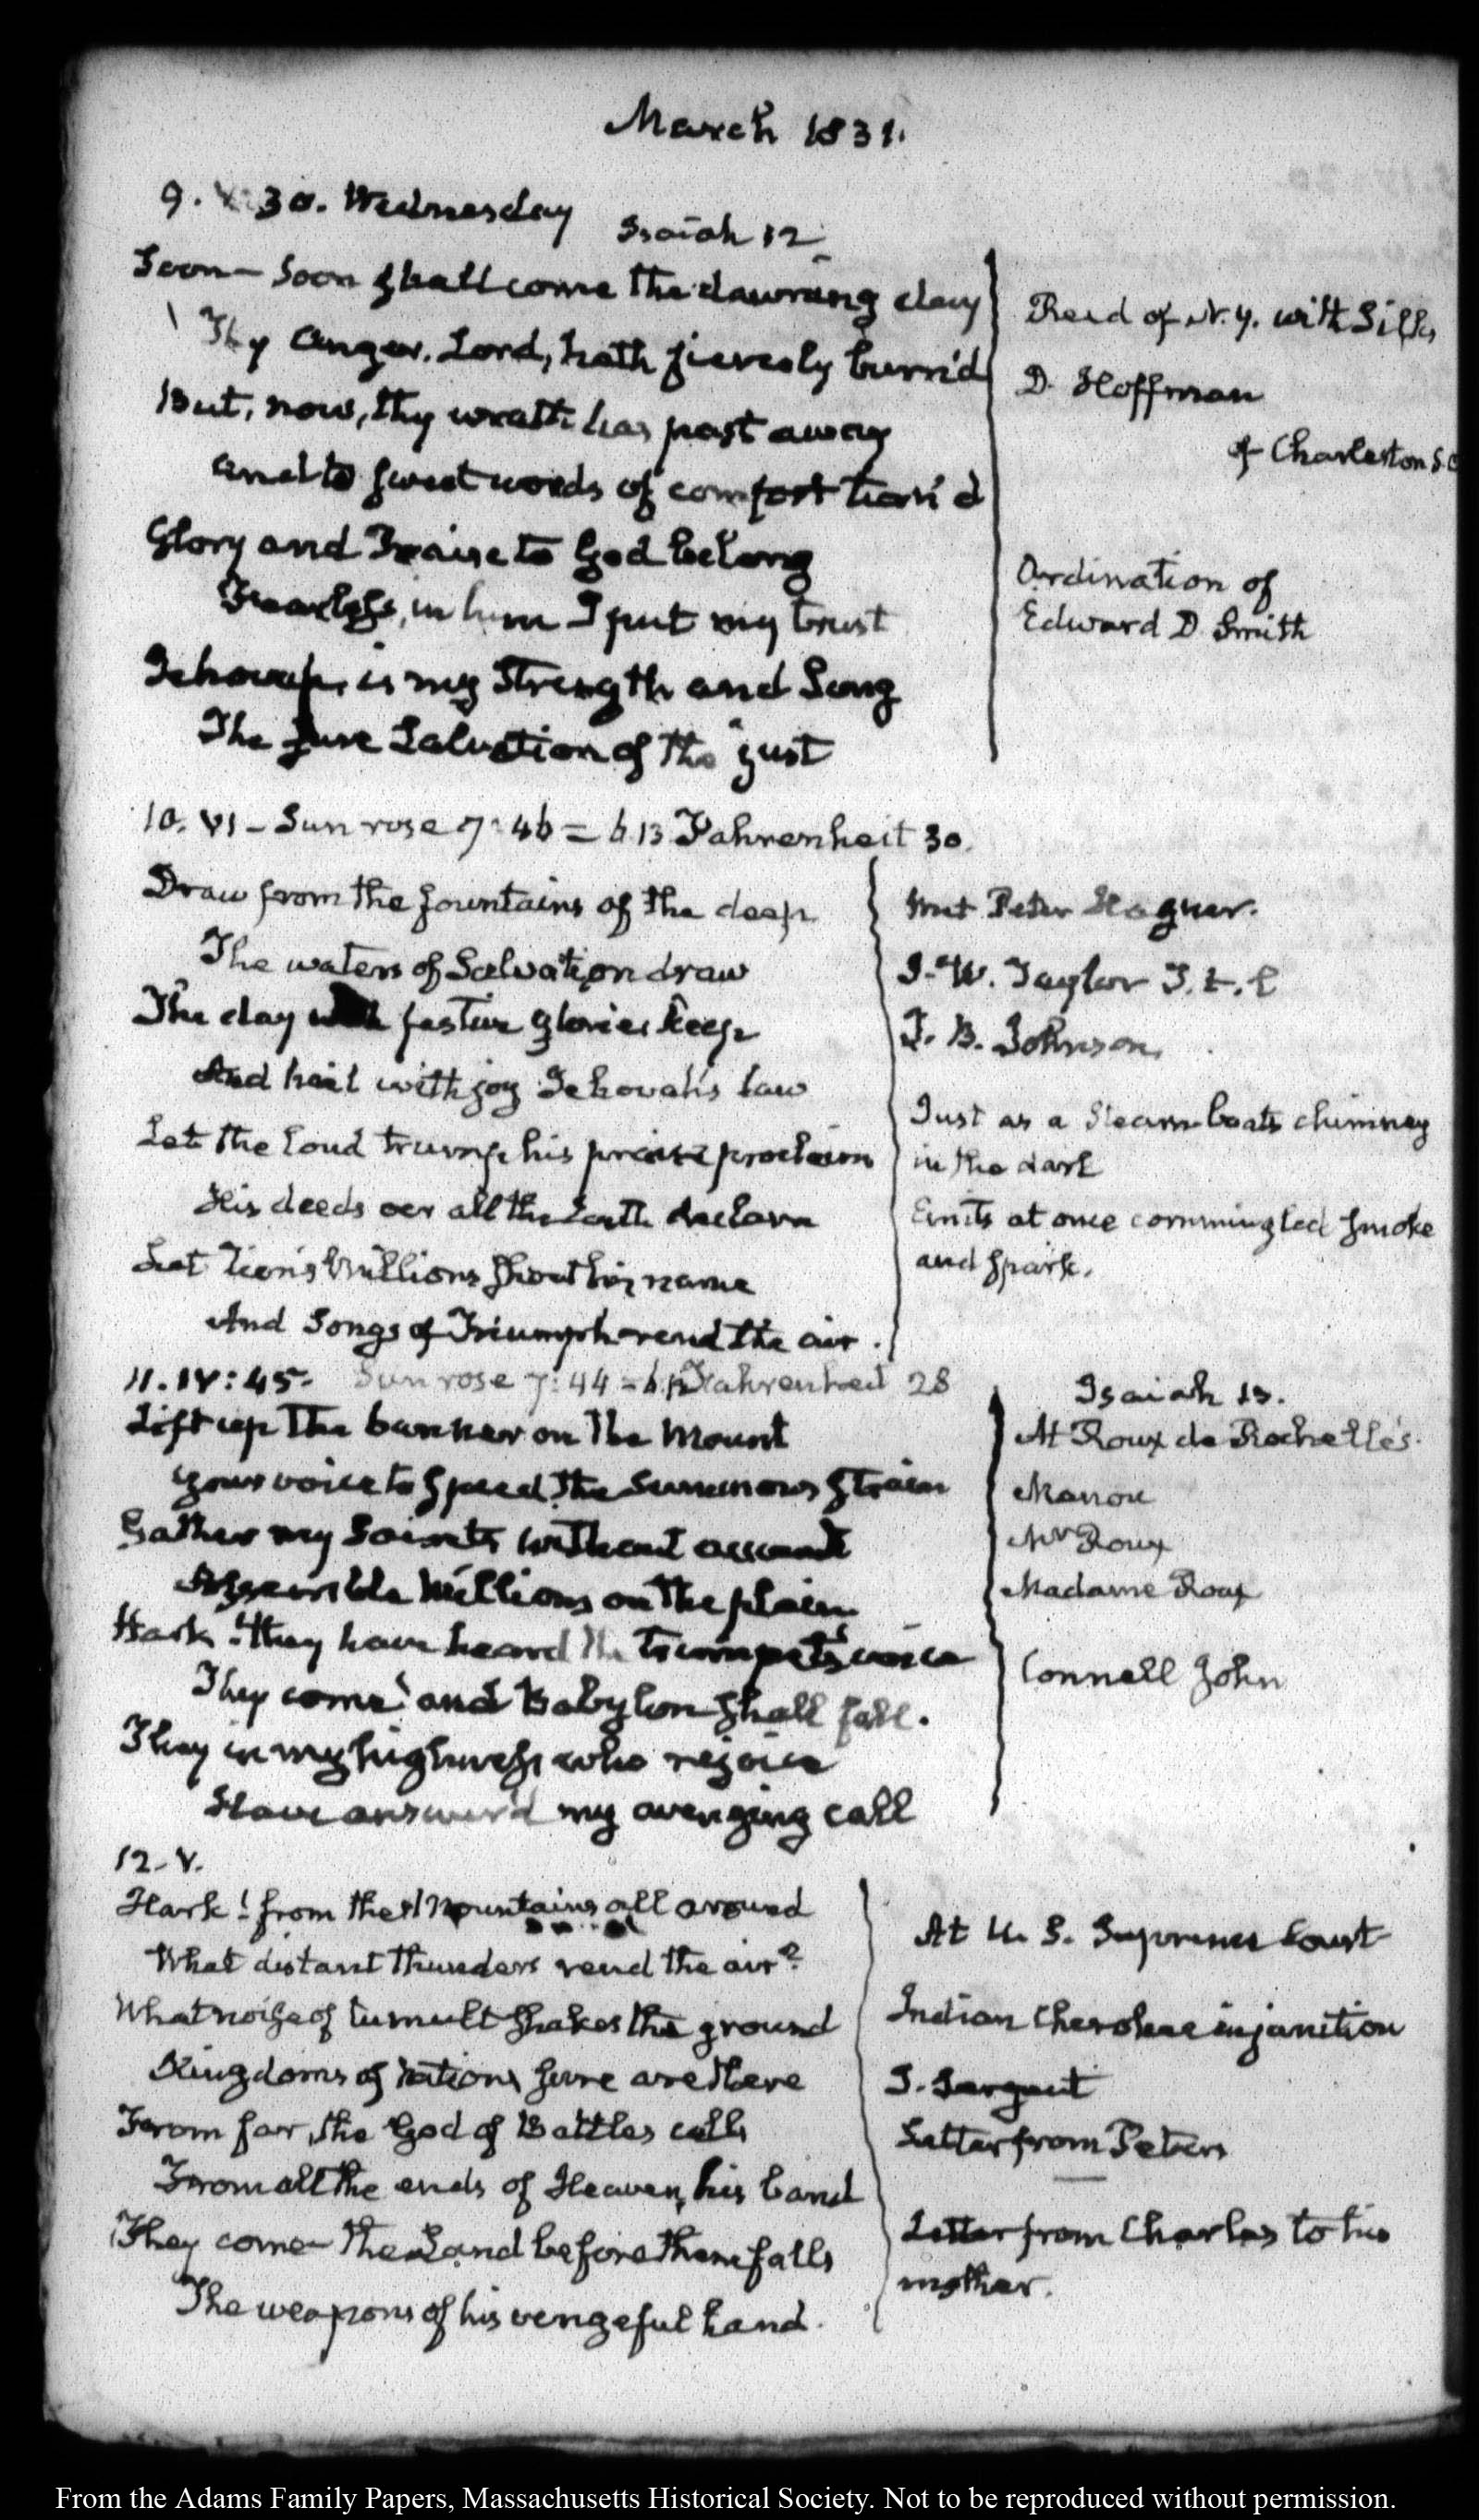 March 1831.
9. V:30. Wednesday
Isaiah 12
Soon - soon shall come the dawning day
Thy anger, Lord, hath fiercely burn'd
But, now, thy wrath has past away
And to sweet words of comfort turn'd
Glory and Praise to God belong
Fearless, in him I put my trust
Jehovah, is my Strength and Song
The sure Salvation of the just
Reed of N.Y. with Silks
D. Hoffman
of Charleston S.C
Ordination of
Edward D Smith
10. VI - Sun rose 7:46 = 6.13 Fahrenheit 30.
Draw from the fountains of the deep
The waters of Salvation draw
The day with festive glories keep
And hail with joy Jehovah's law
Let the loud trump his praise proclaim
His deeds oer all the Earth declare
Let Zion's Millions shout his name
And Songs of Triumph rend the air.
Met Peter Hagner.
J. W. Taylor
F. B. Johnson.
Just as a Steam-boats chimney
in the dark
Emits at once commingled smoke
and spark.
11. IV:45. Sun rose 7:44 = Fahrenheit 28
Lift up the banner on the Mount
Your voice to speed the summons strain
Gather my Saints without account
Assemble Millions on the plain
Hark! they have heard the trumpet's voice
They come! and Babylon shall fall.
They in my highness who rejoice
Have answer'd my avenging call
Isaiah 13.
At Roux de Rochelle's.
Manou
Mr Roux
Madame Roux
Connell John
12. V.
Hark! from the Mountains all around
What distant thunders rend the air?
What noise of tumult shakes the ground
Kingdoms of nations sure are there
From far, the God of Battles calls
From all the ends of Heaven, his band
They come - the Land before them falls
The weapons of his vengeful hand.
At U. S. Supreme Court
Indian Cherokee injunction
J. Sergeant
Letter from Peters
Letter from Charles to his
mother.
From the Adams Family Papers, Massachusetts Historical Society. Not to be reproduced without permission.